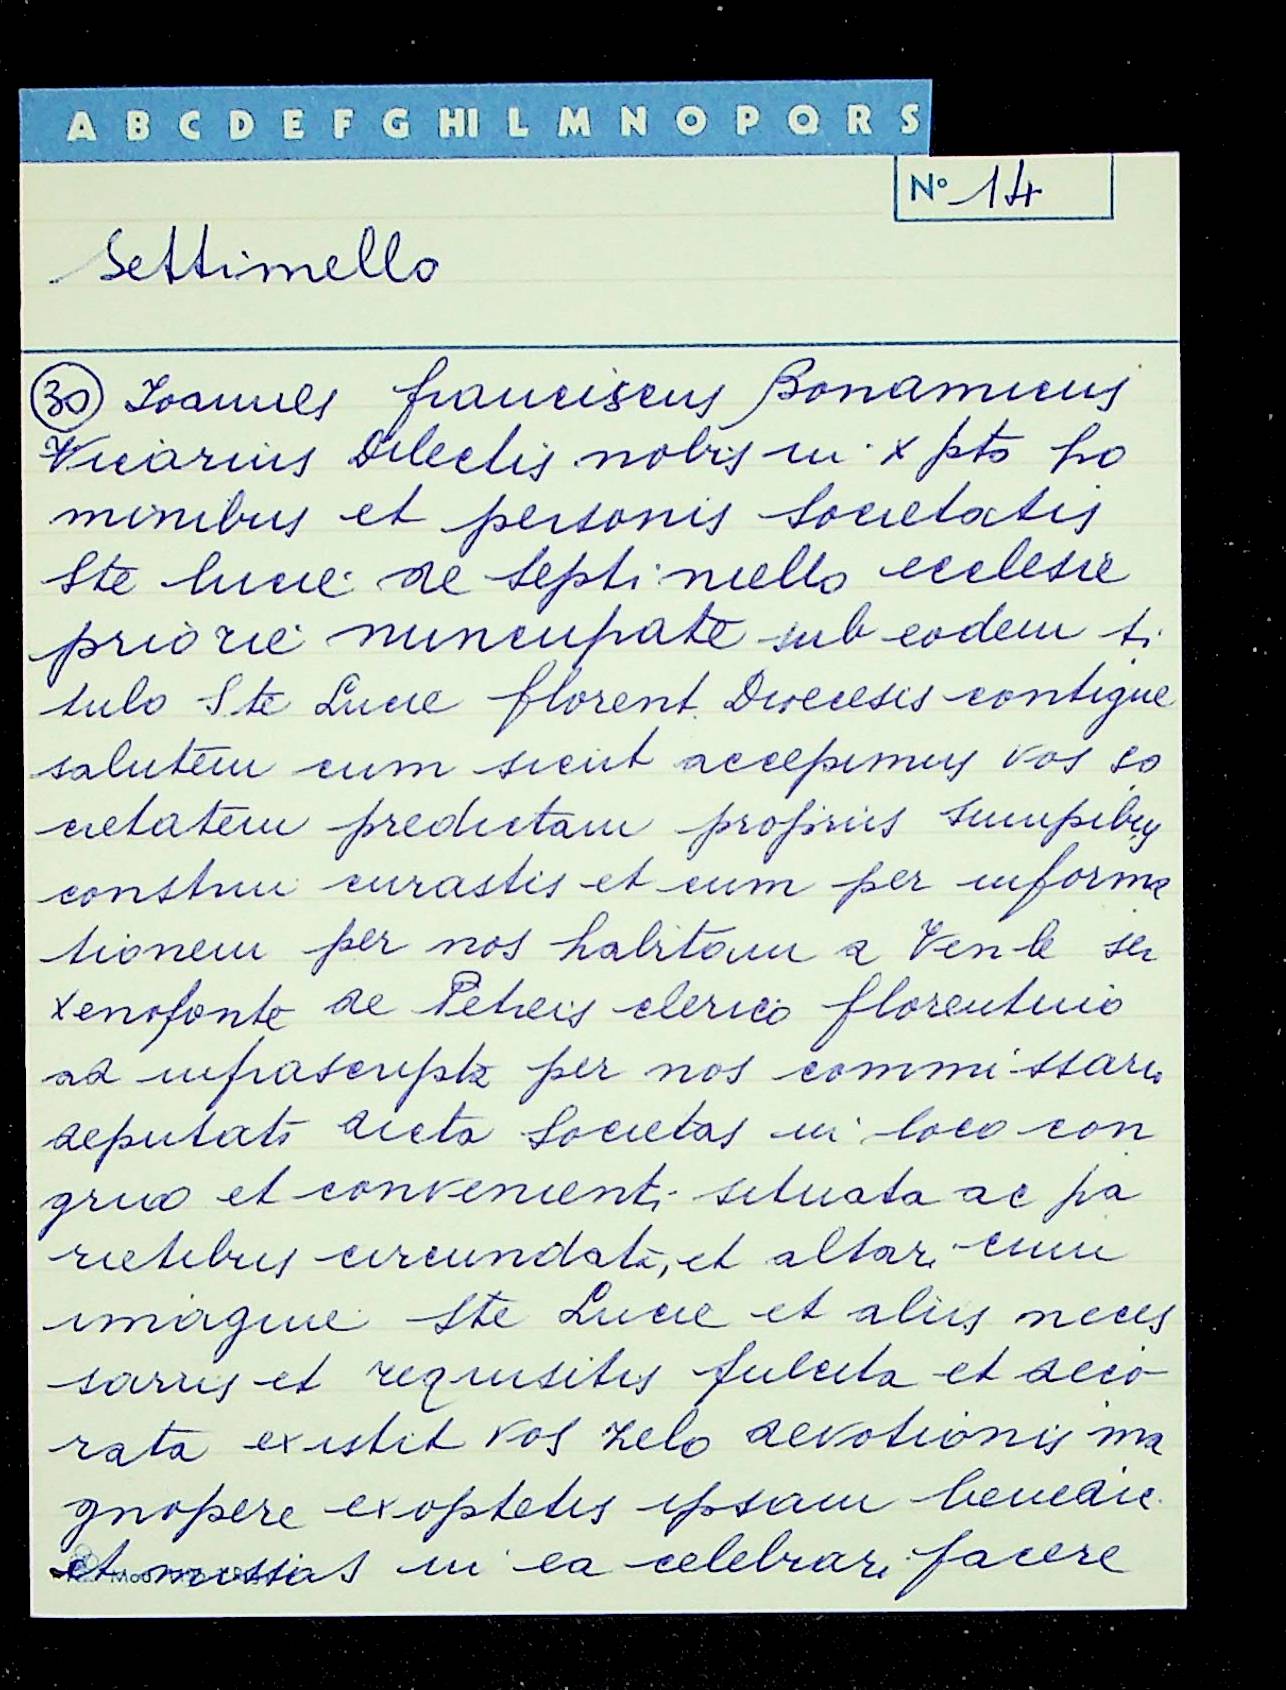 A B C D E F G HI L M N O P Q R S
Nº 14
Settimello
30 Ioannes franciscus Bonamicus
Vicarius Dilectis nobis in xpto ho
minibus et personis Societatis
Ste lucie de Septimello ecclesie
priorie nuncupate sub eodem ti
tulo Ste Lucie florent. Diecesis contigue
salutem cum sicut accepimus vos so
cietatem predictam propriis sumpibus
construi curastis et cum per informa
tionem per nos habitam a Ven-le ser
xenofonte de Petreis clerico florentino
ad infrascripta per nos commissario
deputato dicta Societas in loco con
gruo et convenienti situata ac pa
rietibus circundata, et altari cum
imagine Ste Lucie et aliis neces
sariis et requisitis fulcita et deco
rata existit vos zelo devotionis ma
gnopere exoptetis ipsam benedic.
et missas in ea celebrari facere